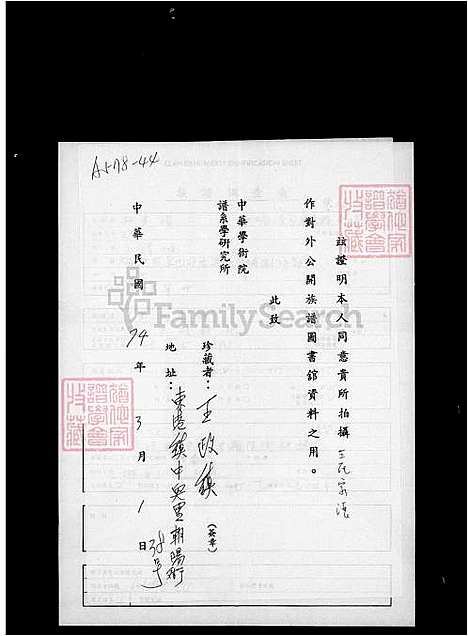 A578-44
茲證明本人同意貴所拍攝王氏家譜
作對外公開族譜圖書館資料之用。
此致
中華學術院
譜系學研究所
珍藏者：王政鎮（簽章）
地址：東港鎮中興里朝陽街
38號
中華民國74年3月1日
FamilySearch